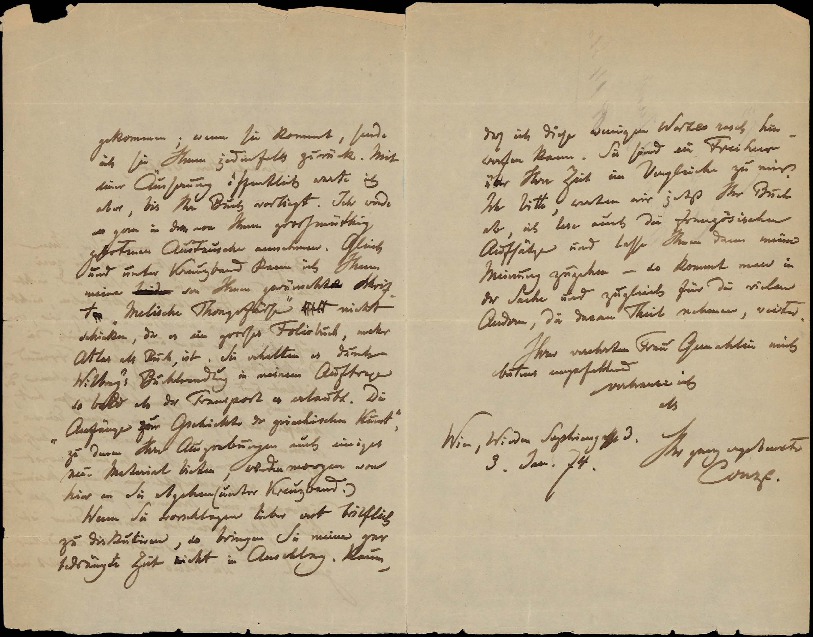 gekommen; wenn sie kommt, sende
ich sie Ihnen jedenfalls zurück. Mit
einer Äusserung öffentlich warte ich
aber, bis Ihr Buch vorliegt. Ich würde
es gern in dem von Ihnen grossmüthig
gebotenen Austausche annehmen. Gleich
und unter Kreuzband kann ich Ihnen
meine von Ihnen gewünschte Schrift
"Melische Thongefässe" nicht
schicken, da es ein grosses Foliobuch, mehr
Atlas als Buch, ist. Sie erhalten es durch
Buchhandlung in meinem Auftrage
so bald als der Transport es erlaubt. Die
"Anfänge zur Geschichte der griechischen Kunst",
zu denen Ihre Ausgrabungen auch einiges
neue Material bieten werden morgen von
hier an Sie abgehen (unter Kreuzband.)
Wenn Sie vorschlagen lieber erst brieflich
zu diskutiren, so bringen Sie meine gar
bedrängte Zeit nicht in Anschlag. Kaum,
daß ich diese wenigen Worte so rasch hin-
werfen kann. Sie sind ein Freiherr
über Ihre Zeit im Vergleiche zu mir.
Ich bitte, warten wir jetzt Ihr Buch
ab, ich lese auch die französischen
Aufsätze und lasse Ihnen dann meine
Meinung zugehen – so kommt man in
der Sache und zugleich für die vielen
Andern, die daran Theil nehmen, weiter.
Ihrer verehrten Frau Gemahlin mich
bestens empfehlend
verharre ich
als
Ihr ganz ergebenster
Conze.
Wien, Wieden 3.
3. Jan. 74.